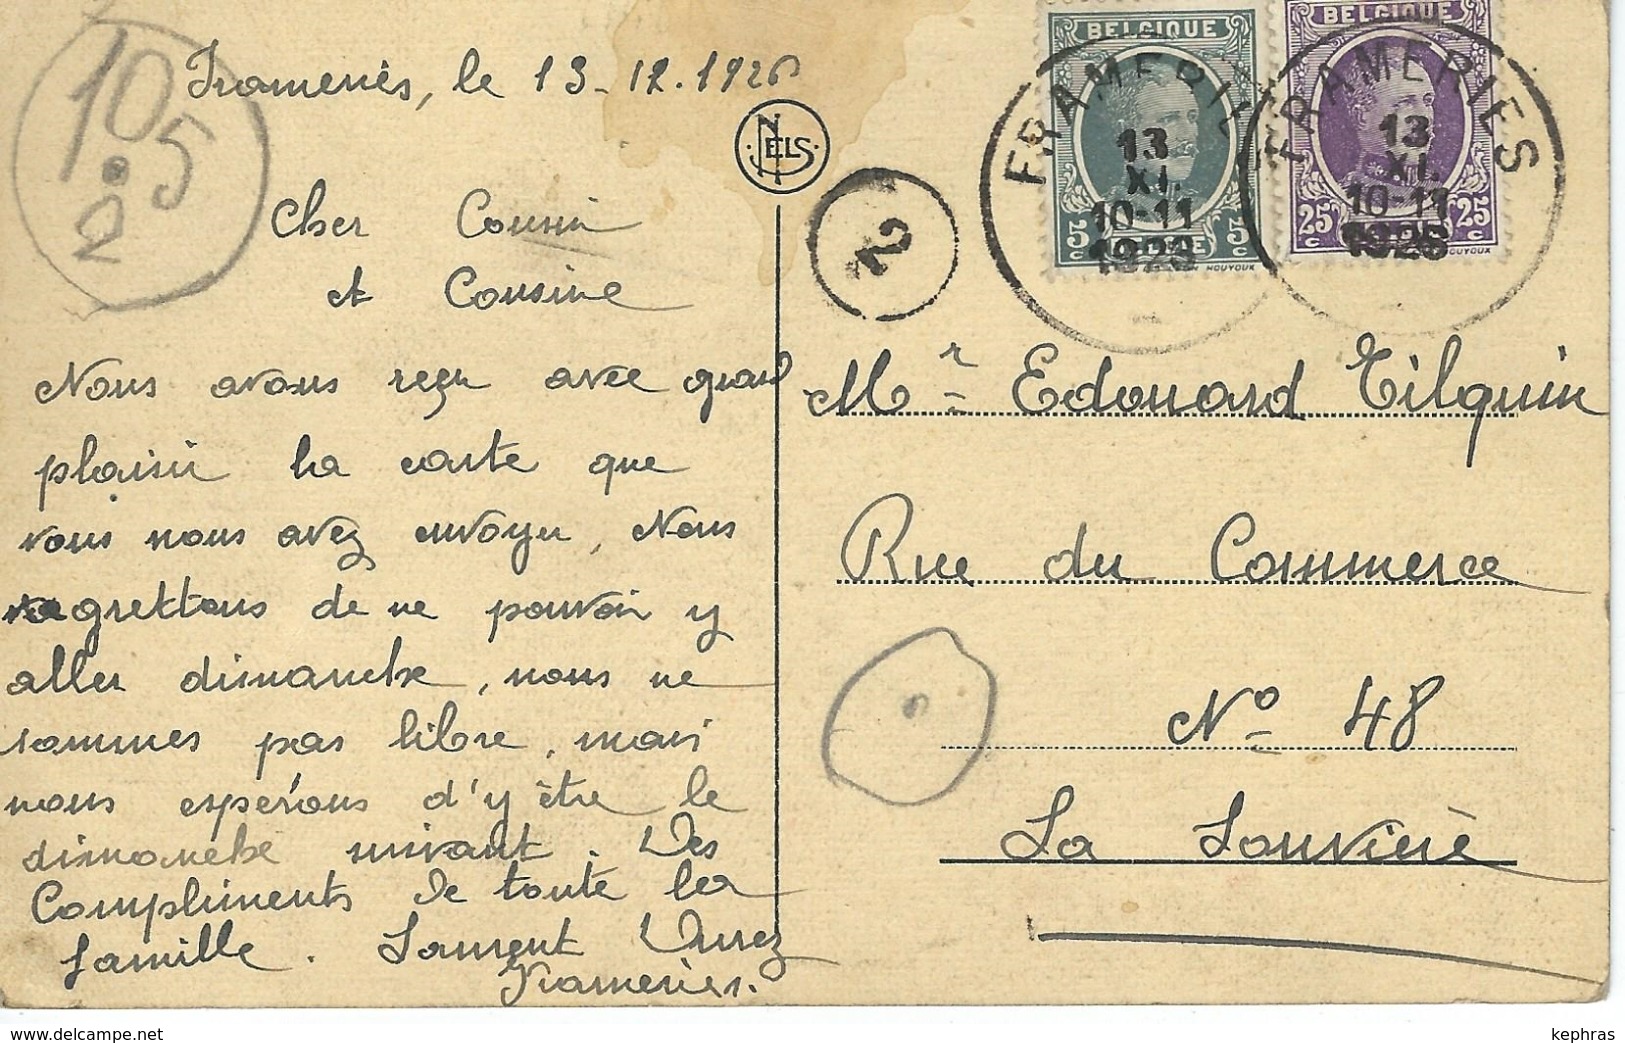 105
2
Frameriès, le 13-12.1926
Cher Cousin
et Cousine
Nous avons reçu avec grand
plaisir la carte que
vous nous avez envoyer, Nous
regrettons de ne pouvoir y
aller dimanche, nous ne
sommes pas libre, mais
nous espérons d'y être le
dimanche suivant. Des
Compliments de toute la
famille. Laurent Durez
Frameries.
NELS
2
BELGIQUE
5 c 5 c
BELGIQUE
25 c 25 c
FRAMERIES
13
XI.
10-11
1926
FRAMERIES
13
XI.
10-11
1926
Mr Edouard Tilquin
Rue du Commerce
No 48
La Louvière
kephras